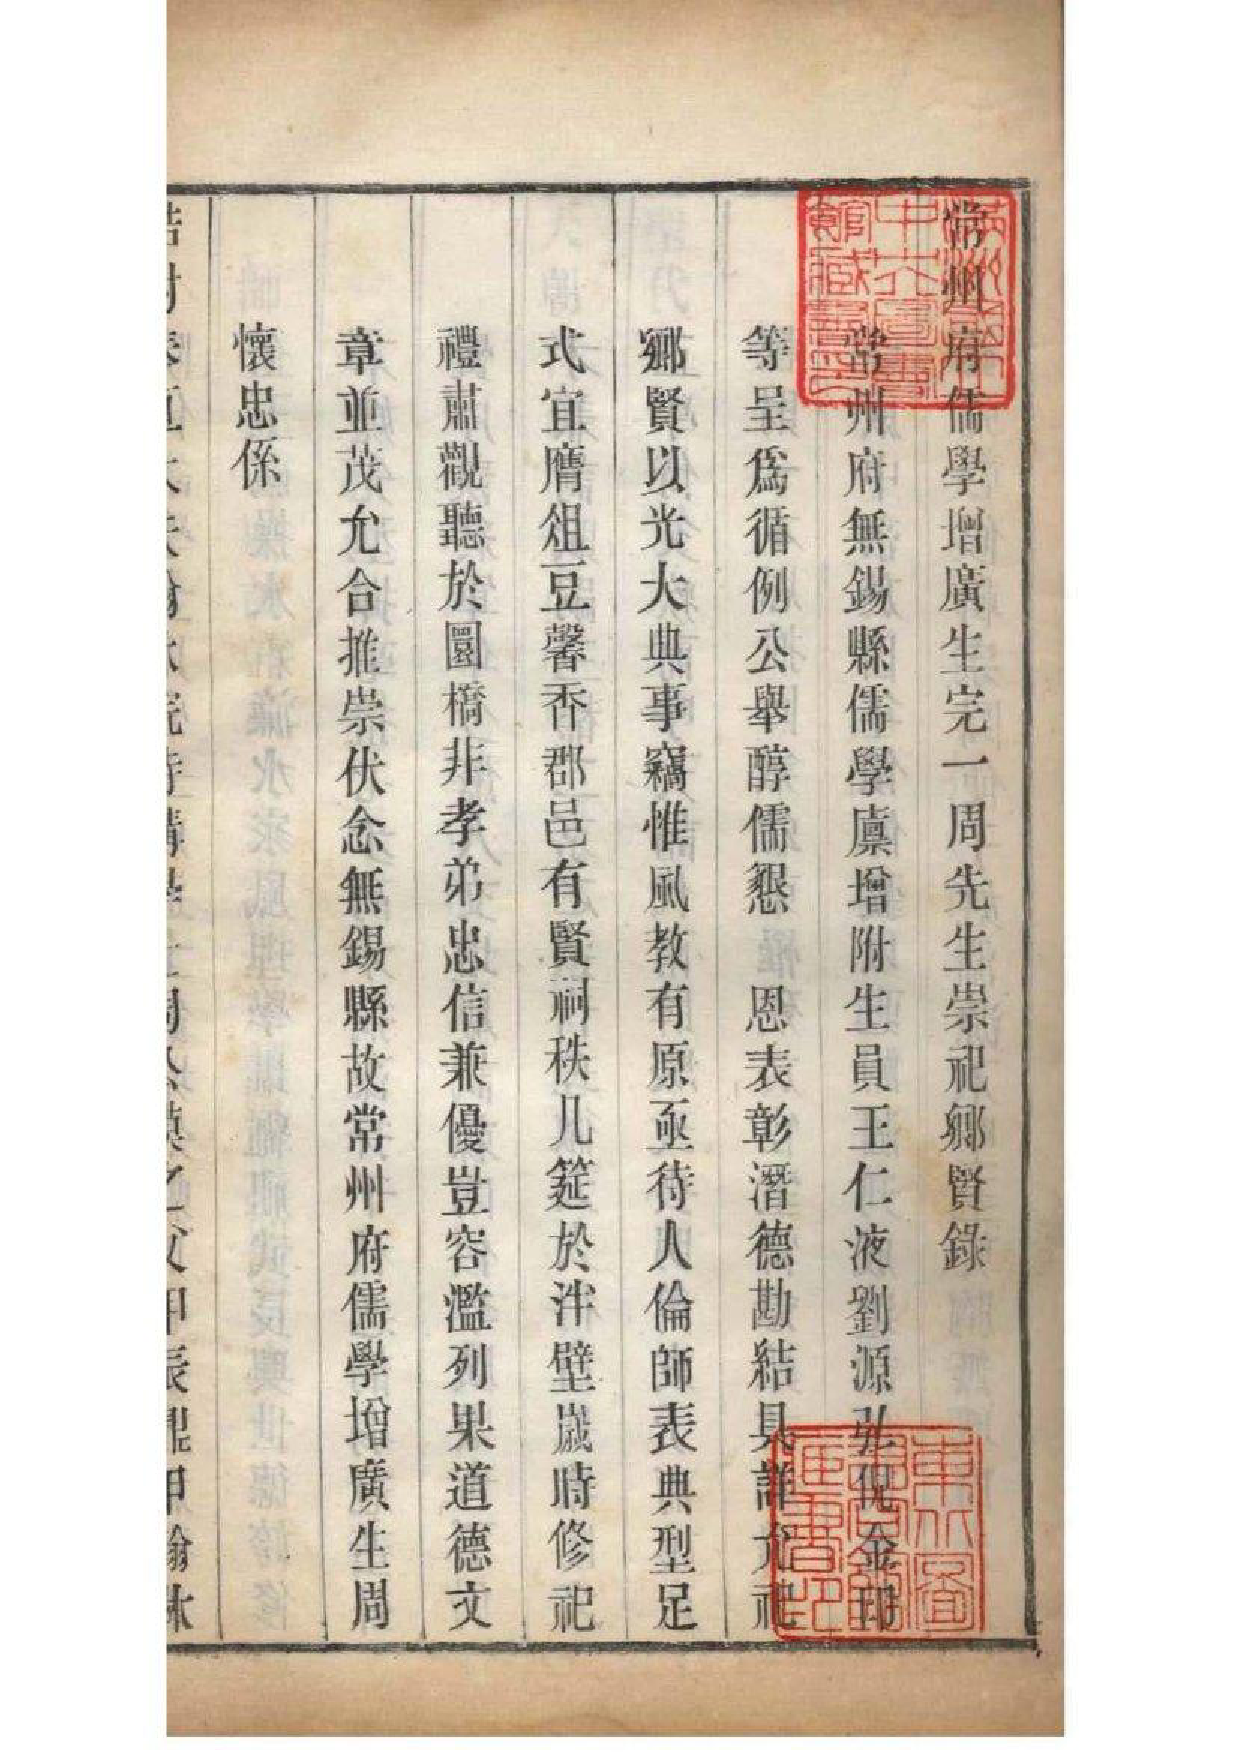 常州府儒學增廣生完一周先生崇祀鄉賢錄
常州府無錫縣儒學廩增附生員王仁液劉源弘倪金
等呈爲循例公舉醇儒懇 恩表彰潛德勘結具詳允祀
鄉賢以光大典事竊惟風教有原亟待人倫師表典型足
式宜膺俎豆馨香郡邑有賢祠秩几筵於泮壁歲時修祀
禮肅觀聽於圜橋非孝弟忠信兼優豈容濫列果道德文
章並茂允合推崇伏念無錫縣故常州府儒學增廣生周
懷忠係